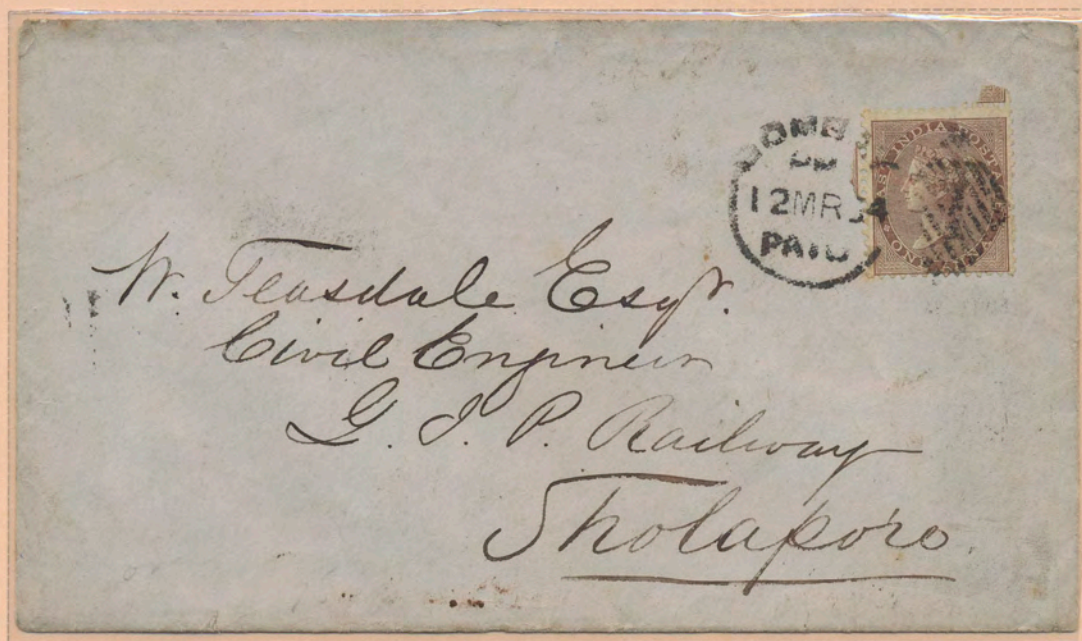 BOMBAY
12 MR 64
PAID
EAST INDIA POSTAGE
ONE ANNA
W. Teasdale Esqr.
Civil Engineer
G. I. P. Railway
Sholapore